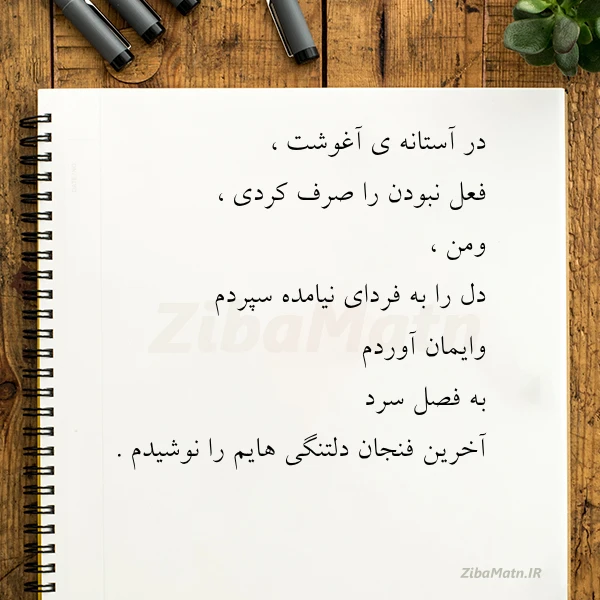 در آستانه ی آغوشت ،
فعل نبودن را صرف کردی ،
ومن ،
دل را به فردای نیامده سپردم
وایمان آوردم
به فصل سرد
آخرین فنجان دلتنگی هایم را نوشیدم .
ZibaMatn
ZibaMatn.IR